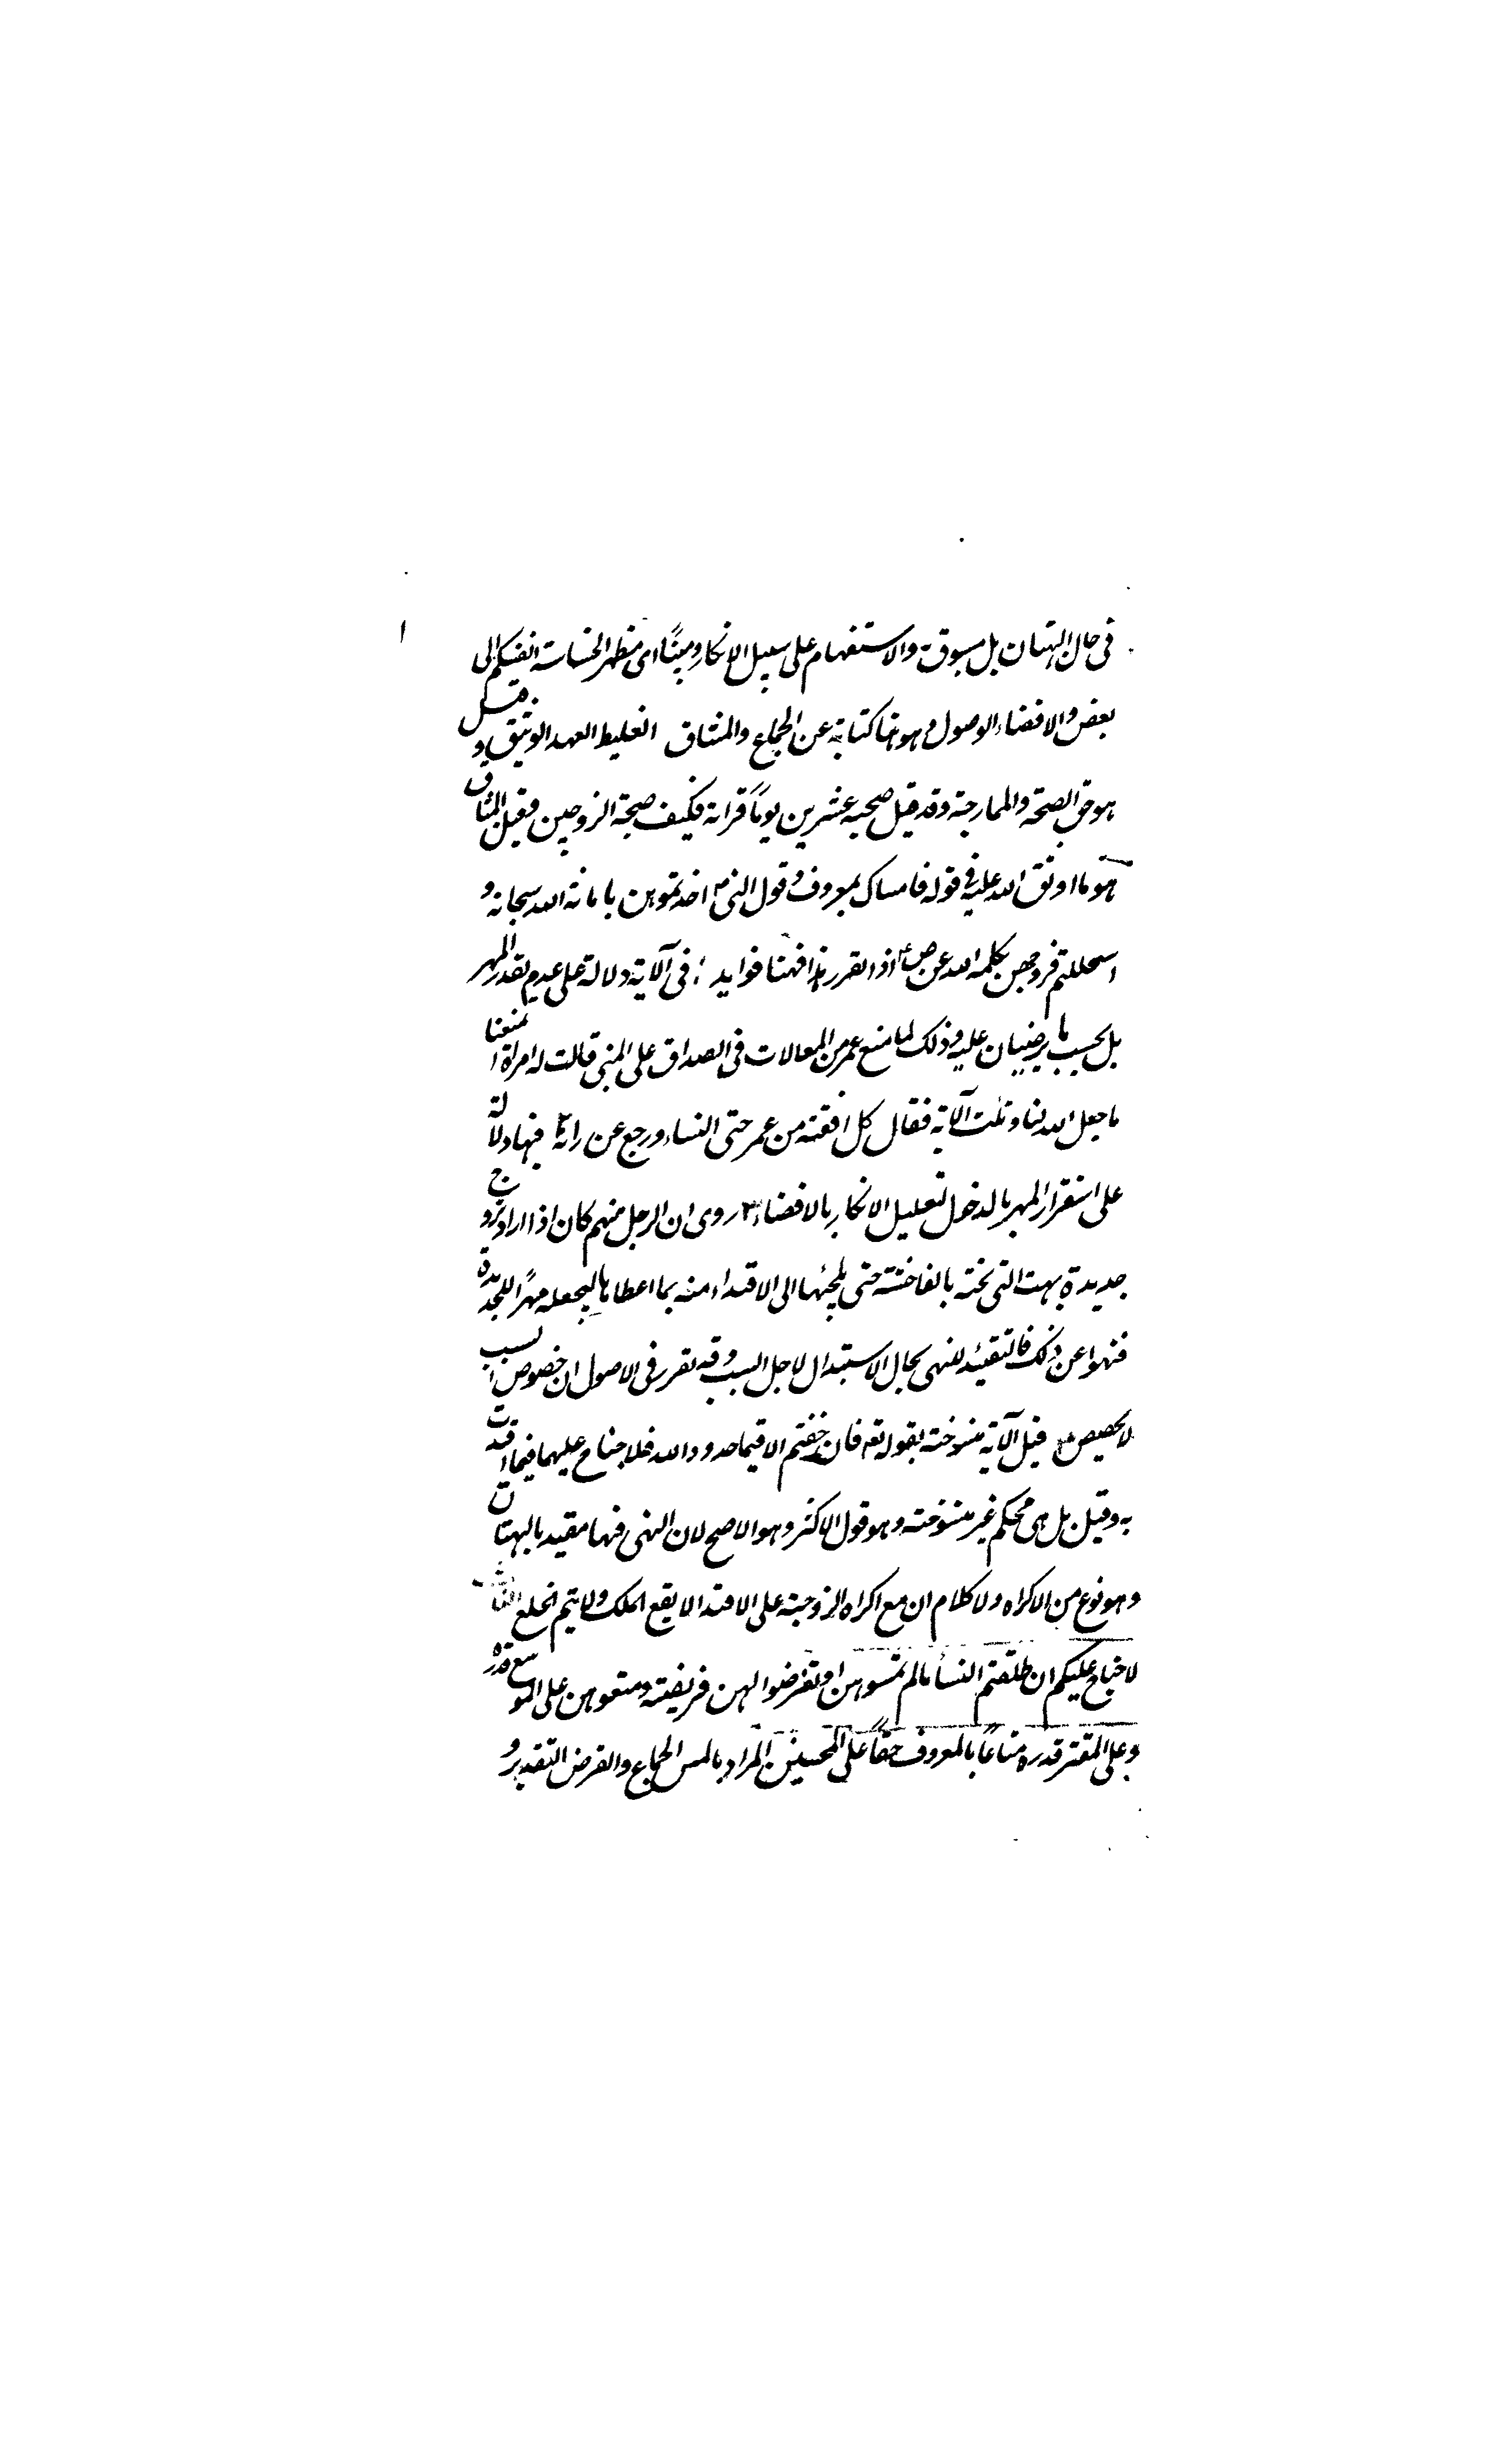 فى حال البهتان بل مسبوق به والاستفهام على سبيل الانكار ومبينًا اى مظهر الخساسة انفسكم الى
بعض والافضاء الوصول وهو هنا كناية عن الجماع والمثاق الغليظ العهد الوثيق وقيل
هو حق الصحبة والممازجة وقد قيل صحبة عشرين يومًا قرابة فكيف صحبة الزوجين وقيل المثاق
هو ما اوثق الله عليه فى قوله فامساك بمعروف وقول النبى اخذتموهن بامانة الله سبحانه و
استحللتم فروجهن بكلمة الله اذا تقرر هذا فهنا فوايد ا فى الآية دلالة على عدم تقدر المهر
بل بحسب ما يرضيان عليه وذلك لما منع عمر من المغالات فى الصداق على المنبر قالت له امراة اتمنعنا
ما جعل الله لنا وتلت الآية فقال كل افقه من عمر حتى النساء ورجع عن رايه ٢ فيها دلالة
على استقرار المهر بالدخول لتعليل الانكار بالافضاء ٣ روى ان الرجل منهم كان اذا اراد تزوج
جديدة بهت التى تحته بالفاحشة حتى يلجئها الى الافتداء منه بما اعطاها ليجعله مهرًا للجديدة
فنهوا عن ذلك فالتقييد للنهى بحال الاستبدال لاجل السبب وقد تقرر فى الاصول ان خصوص السبب
لا يخصص ٤ قيل الآية منسوخة بقوله تعه فان خفتم الا يقيما حدود الله فلا جناح عليهما فيما افتدت
به وقيل بل هى محكم غير منسوخة وهو قول الاكثر وهو الاصح لان النهى فيها مقيد بالبهتان
وهو نوع من الاكراه ولا كلام ان مع اكراه الزوجة على الافتدا لا يقع الملك ولا يتم الخلع الثالثة
لا جناح عليكم ان طلقتم النسأ ما لم تمسوهن او تفرضوا لهن فريضة ومتعوهن على الموسع قدره
وعلى المقتر قدره متاعًا بالمعروف حقًا على المحسنين المراد بالمس الجماع والفرض التقدير و